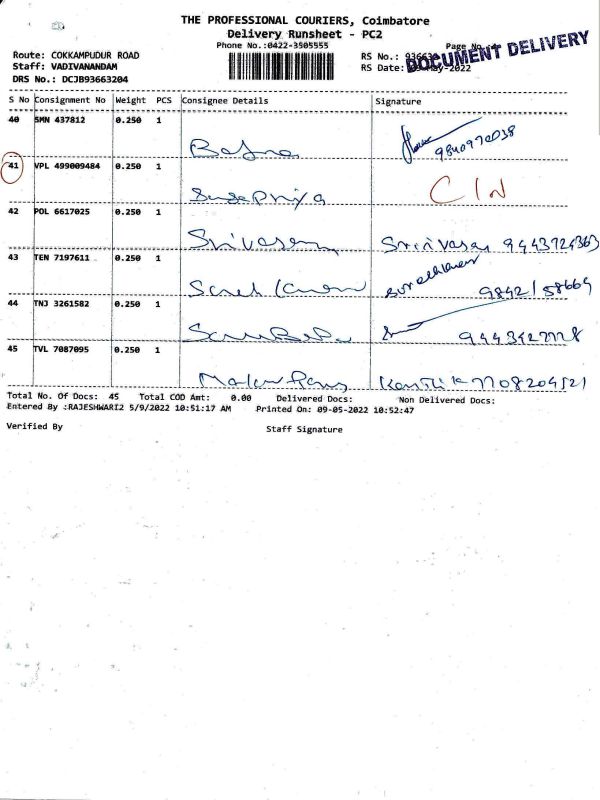 THE PROFESSIONAL COURIERS, Coimbatore
Delivery Runsheet - PC2
Phone No.:0422-3505555
Route: COKKAMPUDUR ROAD
Staff: VADIVANANDAM
DRS No.: DCJB93663204
RS No.:
RS Date: May-2022
Page No.
DOCUMENT DELIVERY
S No Consignment No Weight PCS Consignee Details Signature
40 SMN 437812 0.250 1
9840970038
41 VPL 499009484 0.250 1
C/N
42 POL 6617025 0.250 1
Srinivasan 9443724363
43 TEN 7197611 0.250 1
9842158669
44 TNJ 3261582 0.250 1
45 TVL 7087095 0.250 1
7708204521
Total No. Of Docs: 45 Total COD Amt: 0.00 Delivered Docs: Non Delivered Docs:
Entered By :RAJESHWARI2 5/9/2022 10:51:17 AM Printed On: 09-05-2022 10:52:47
Verified By Staff Signature